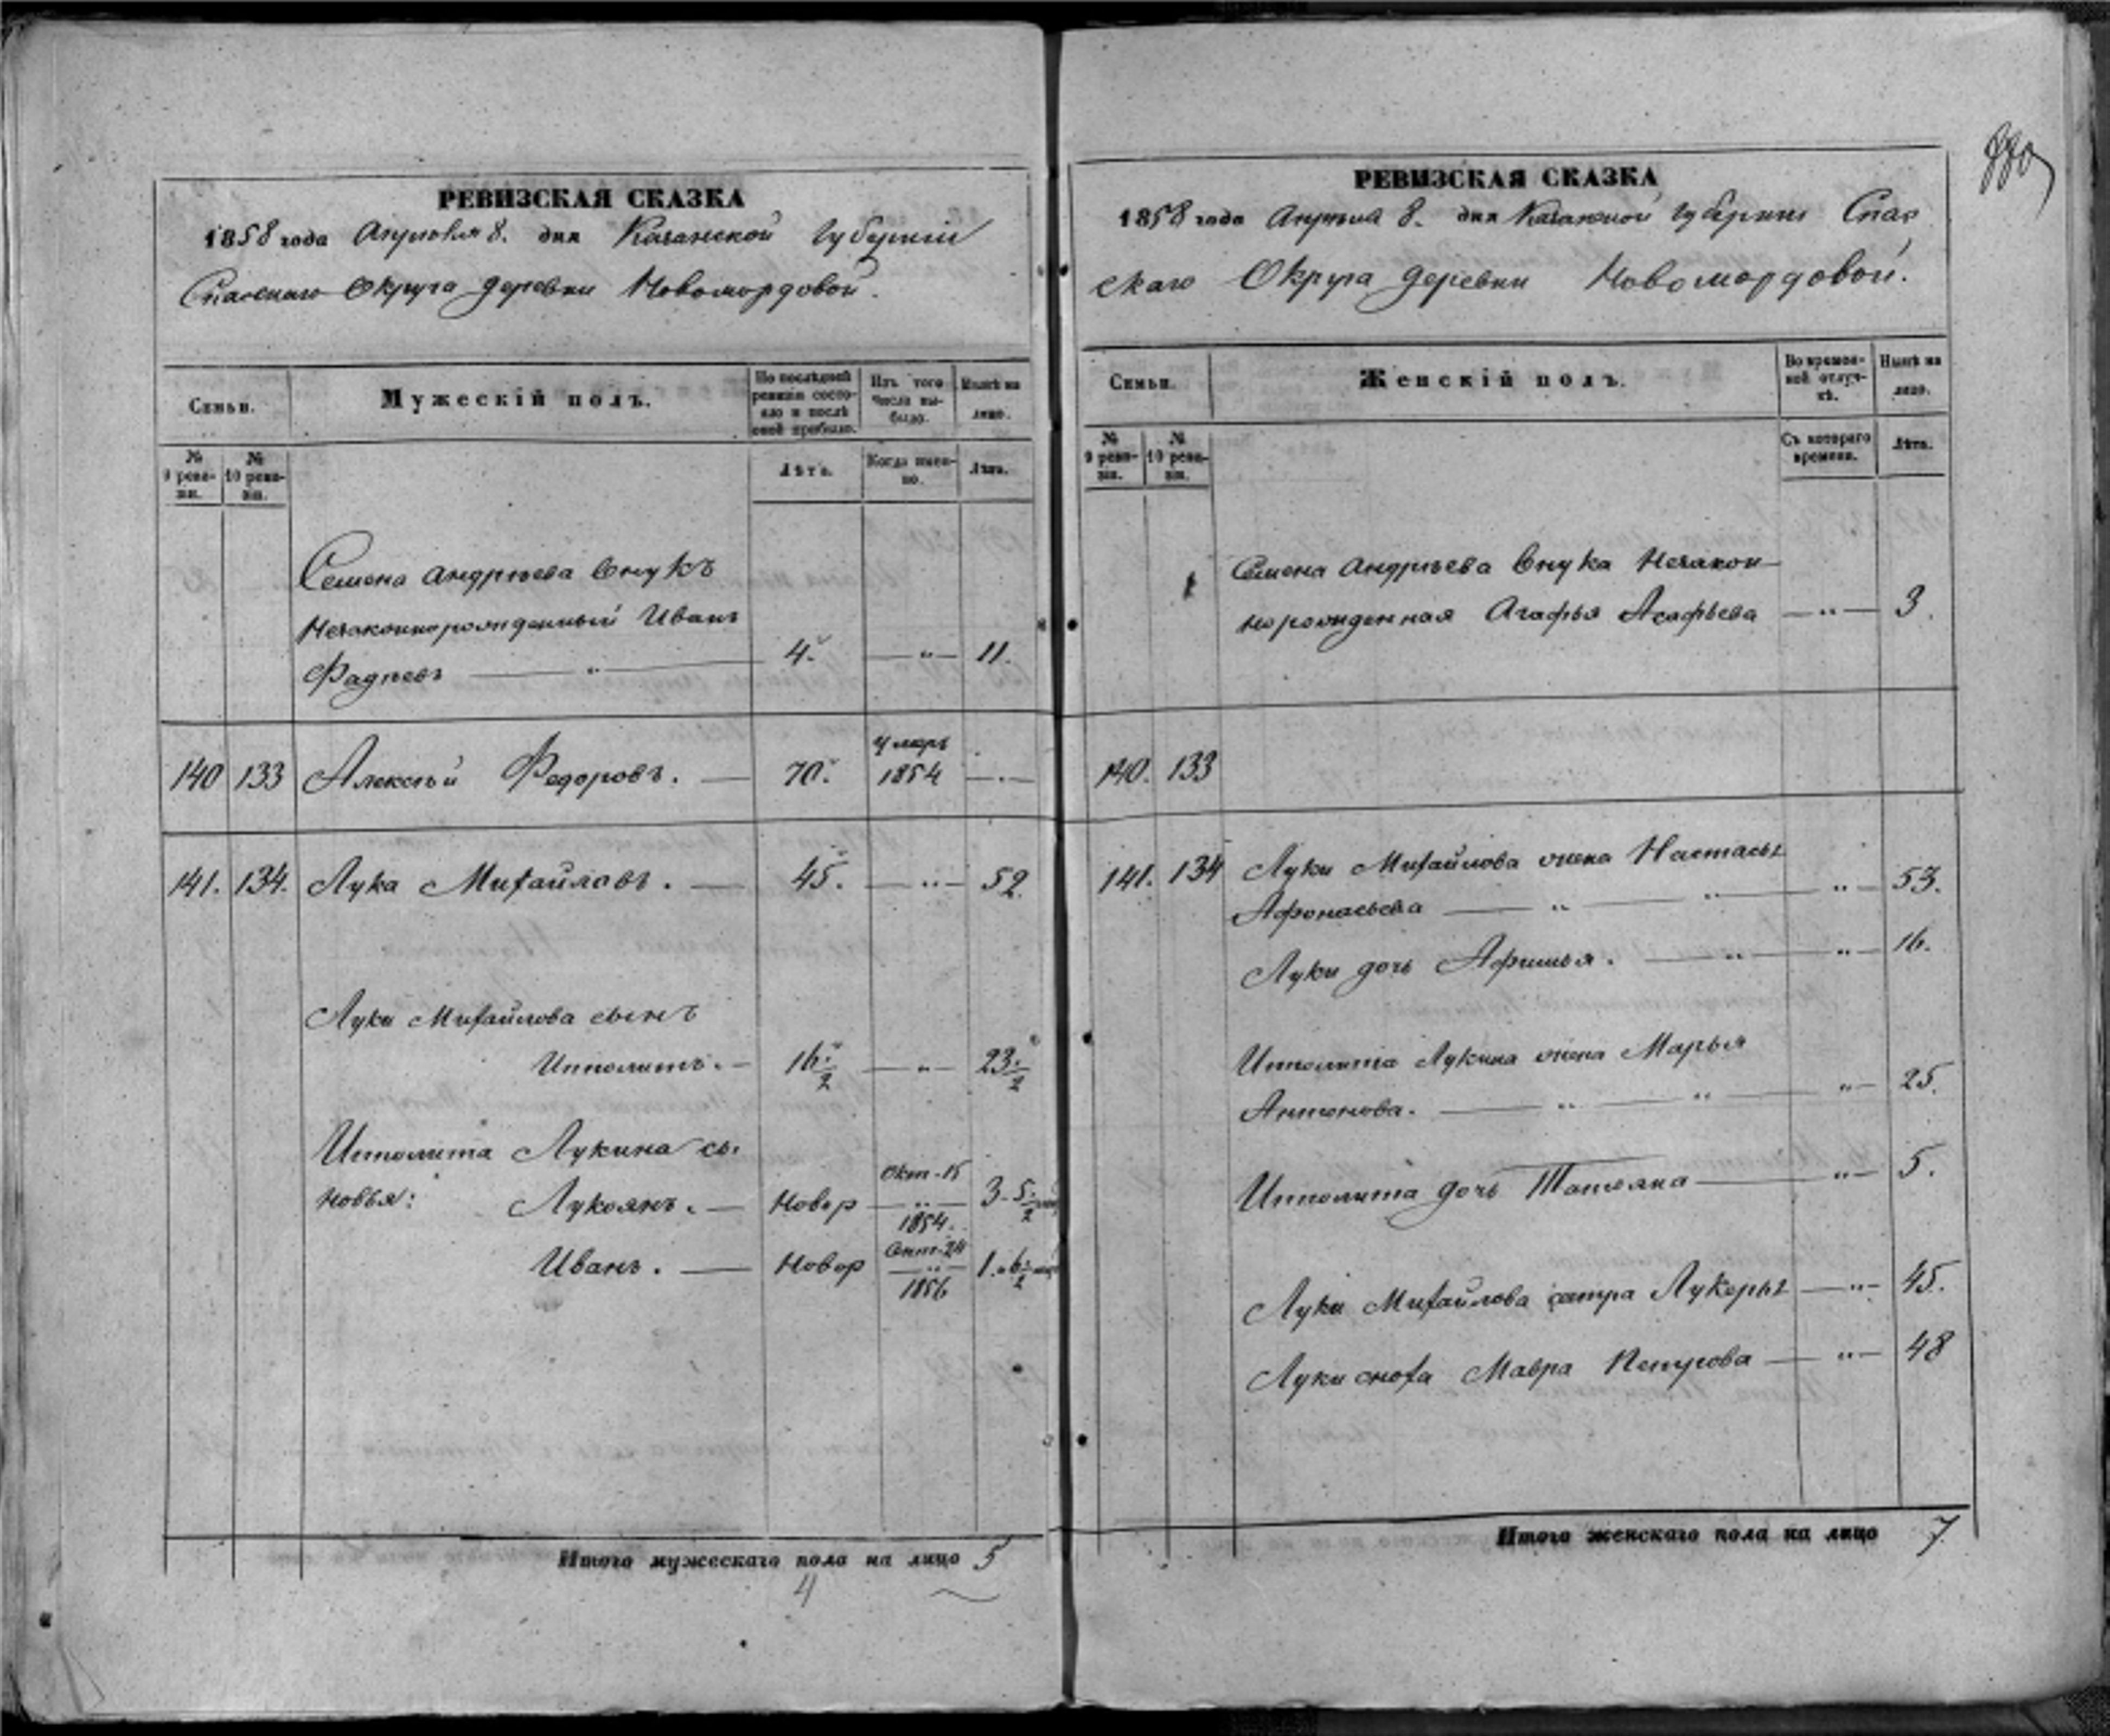 РЕВИЗСКАЯ СКАЗКА
1858 года Апреля 8. дня Казанской Губернiи
Спаскаго Округа деревни Новомордовой.
Семьи.
Мужескiй полъ.
По послѣдней ревизiи состояло и послѣ оной прибыло.
Изъ того числа выбыло.
Нынѣ на лицо.
№ 9 ревизiи.
№ 10 ревизiи.
Лѣта.
Когда именно.
Лѣта.
Семена Андрѣева внукъ
Незаконнорожденный Иванъ
Фадѣевъ — " — 4. — " — 11.
140 133 Алексѣй Федоровъ. — 70. умеръ 1854 — . —
141. 134. Лука Михайловъ. — 45. — " — 52
Луки Михайлова сынъ
Иполитъ. — 16 1/2 — " — 23 1/2
Иполита Лукина сы-
новья: Лукоянъ. — Новор Окт. 15 1854. 3. 5 1/2 мѣс
Иванъ. — Новор Сент. 24 1856 1. 6 1/2 мѣс
Итого мужескаго пола на лицо 5
4
880
РЕВИЗСКАЯ СКАЗКА
1858 года Апрѣля 8. дня Казанской Губернiи Спас
скаго Округа деревни Новомордовой.
Семьи.
Женскiй полъ.
Во временной отлучкѣ.
Нынѣ на лицо.
№ 9 ревизiи.
№ 10 ревизiи.
Съ котораго времени.
Лѣта.
Семена Андрѣева внука Незакон-
норожденная Агафья Асафьева — " — 3.
140. 133
141. 134 Луки Михайлова жена Настасья
Афонасьева — " — " — " — 53.
Луки дочь Афимья. — " — " — 16.
Иполита Лукина жена Марья
Антонова. — " — " — " — 25.
Иполита дочь Татьяна — " — 5.
Луки Михайлова сестра Лукерья — " — 45.
Луки сноха Мавра Петрова — " — 48
Итого женскаго пола на лицо 7